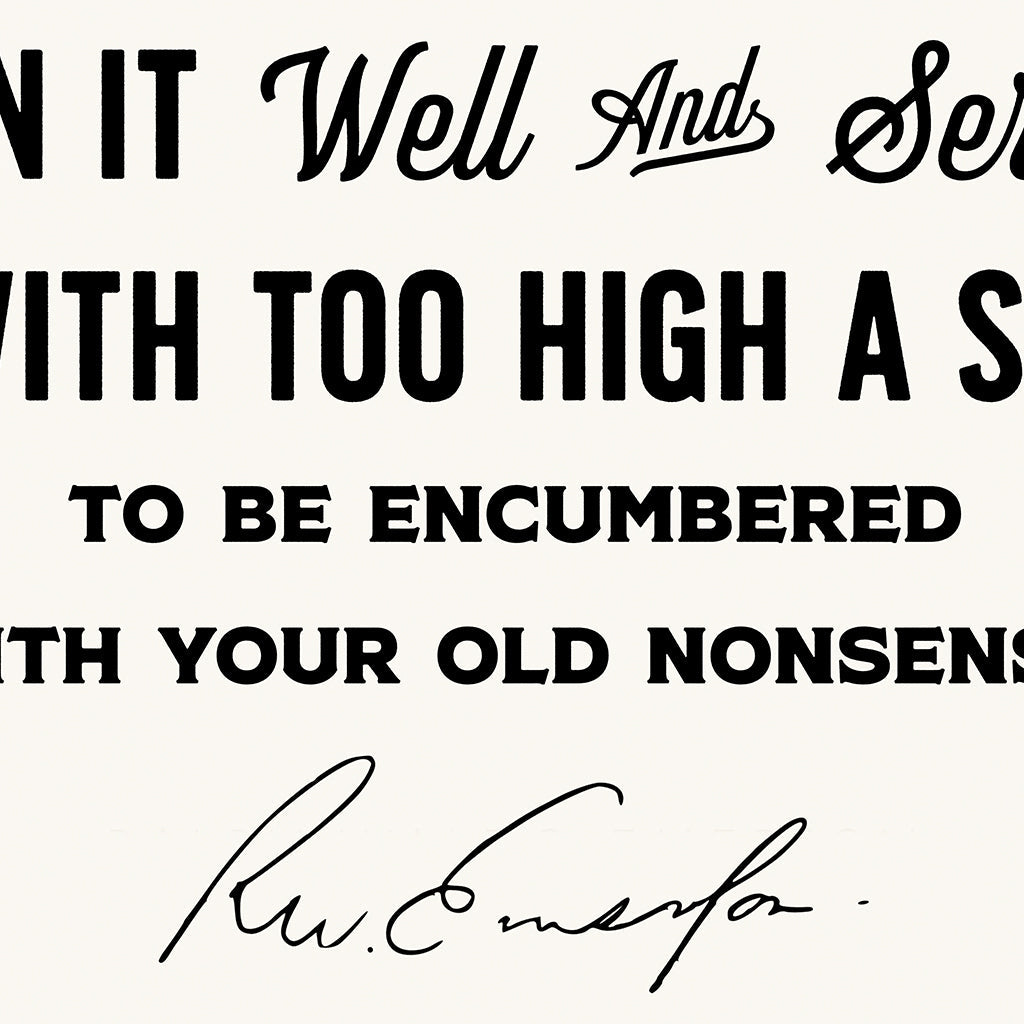 N IT Well And Ser
WITH TOO HIGH A S
TO BE ENCUMBERED
ITH YOUR OLD NONSENS
Rw. Emerson